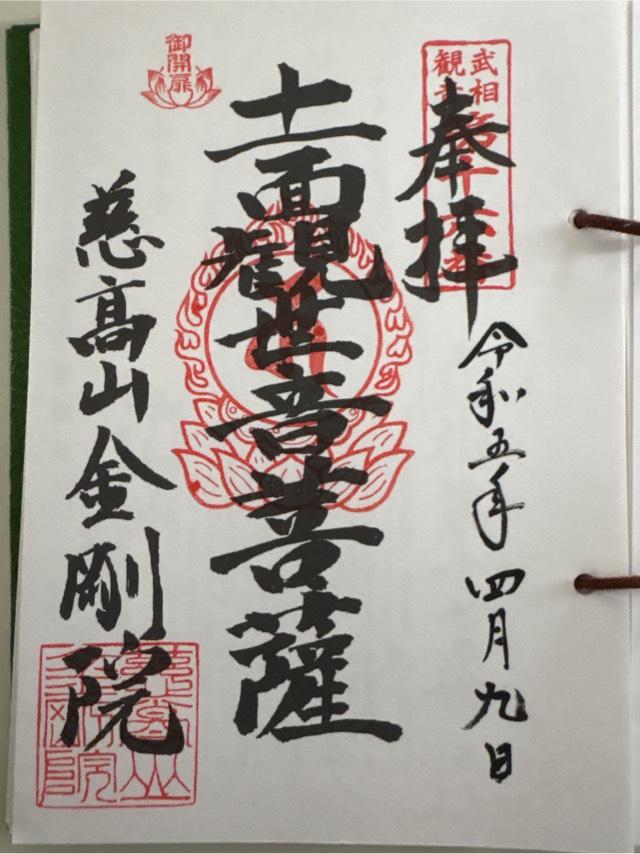 武相
観音
奉拝
令和五年四月九日
十一面観世音菩薩
御開扉
慈高山金剛院
慈高山
金剛院